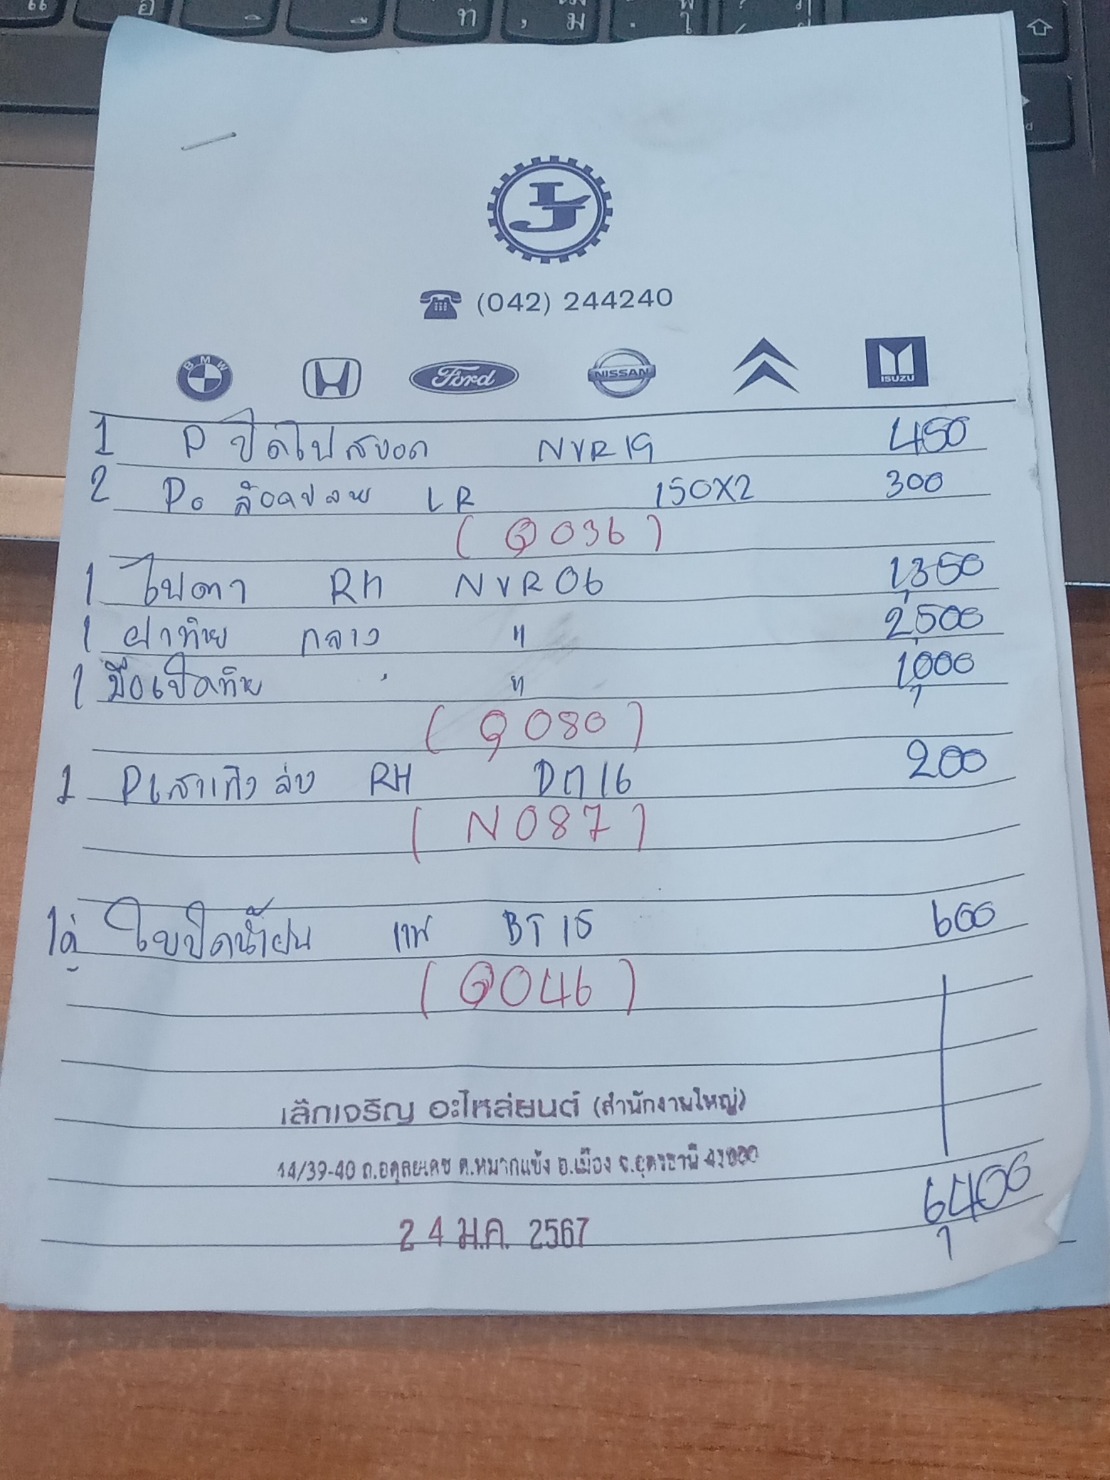 LJ
(042) 244240
BMW H Ford NISSAN ISUZU
1 P ปิดไฟสบอด NVR19 450
2 Po ล้อคปลาย LR 150X2 300
(Q036)
1 ไฟตา RH NVR06 1,350
1 ฝาท้าย กลาง " 2,500
1 มือเปิดท้าย " 1,000
(Q080)
1 Pเสาเก๋ง ล่าง RH DM16 200
(N087)
1คู่ ใบปัดน้ำฝน แท้ BT15 600
(Q046)
เล็กเจริญ อะไหล่ยนต์ (สำนักงานใหญ่)
44/39-40 ถ.อดุลยเดช ต.หมากแข้ง อ.เมือง จ.อุดรธานี 41000
24 ม.ค. 2567
6,400